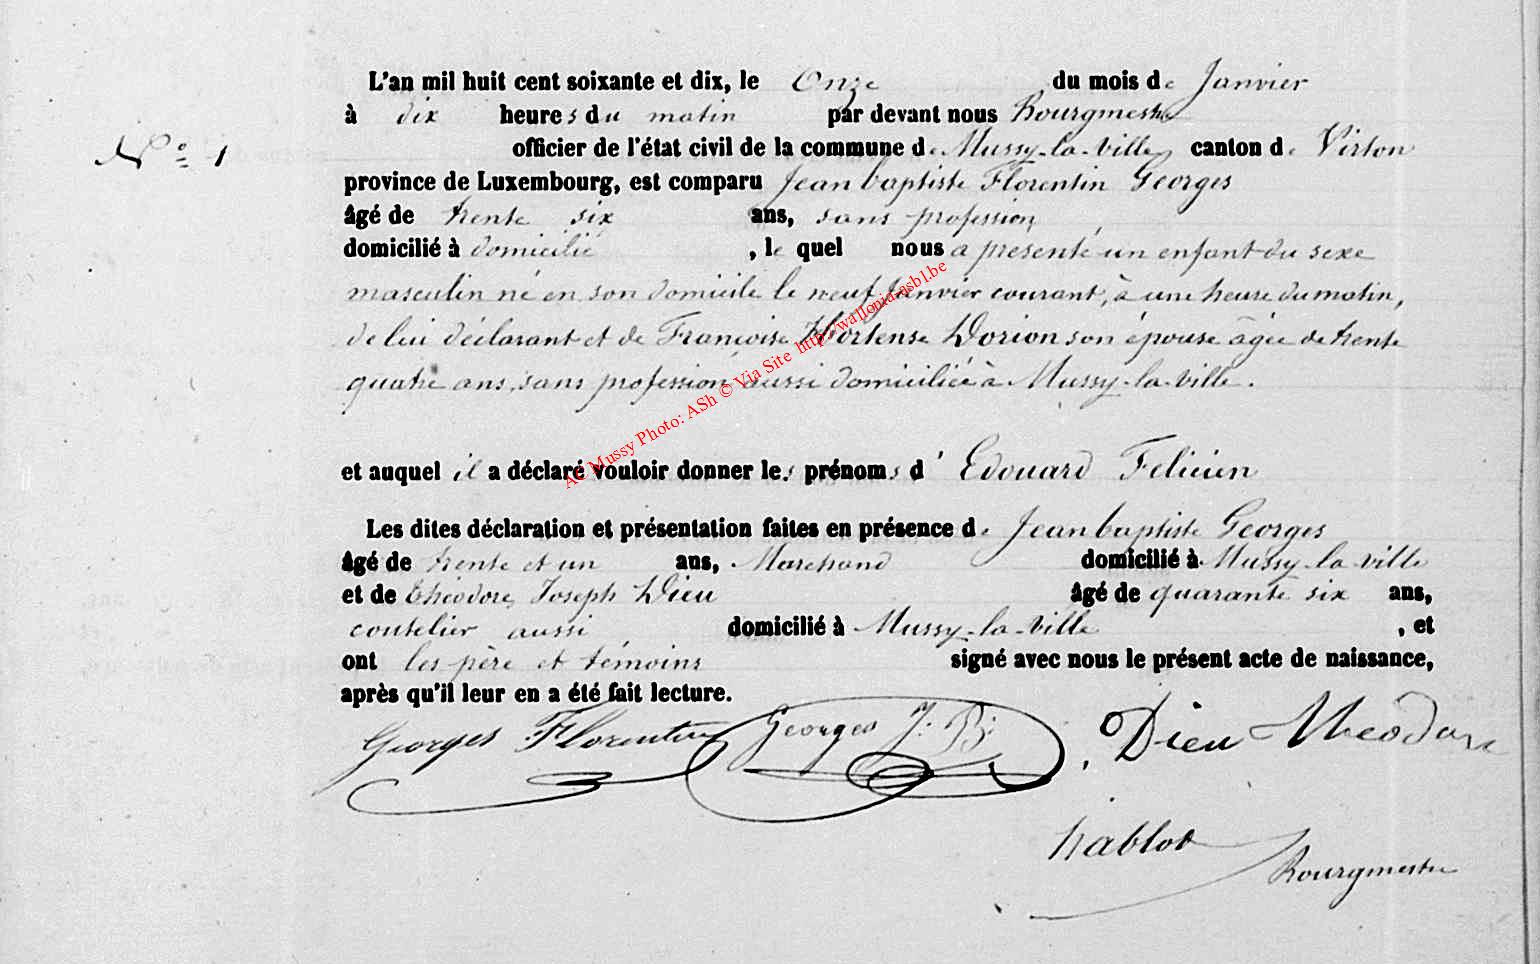 L'an mil huit cent soixante et dix, le Onze du mois de Janvier
à dix heures du matin par devant nous Bourgmestre
N° 1
officier de l'état civil de la commune de Mussy-la-ville, canton de Virton
province de Luxembourg, est comparu Jean baptiste Florentin Georges
âgé de trente six ans, sans profession,
domicilié à domicilié, le quel nous a présenté un enfant du sexe
masculin né en son domicile le neuf Janvier courant, à une heure du matin,
de lui déclarant et de Françoise Hortense Dorion son épouse âgée de trente
quatre ans, sans profession, aussi domiciliée à Mussy-la-ville.
AC Mussy Photo: ASh © Via Site http://wallonia-asbl.be
et auquel il a déclaré vouloir donner les prénoms d' Edouard Felicien
Les dites déclaration et présentation faites en présence de Jean baptiste Georges
âgé de trente et un ans, Marchand domicilié à Mussy-la-ville
et de théodore Joseph Dieu âgé de quarante six ans,
coutelier aussi domicilié à Mussy-la-ville, et
ont les père et témoins signé avec nous le présent acte de naissance,
après qu'il leur en a été fait lecture.
Georges Florentin Georges J. B. Dieu théodore
hablot
Bourgmestre